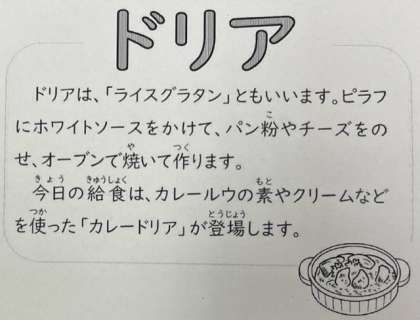 ドリア
ドリアは、「ライスグラタン」ともいいます。ピラフ
にホワイトソースをかけて、パン粉やチーズをの
せ、オーブンで焼いて作ります。
今日の給食は、カレールウの素やクリームなど
を使った「カレードリア」が登場します。